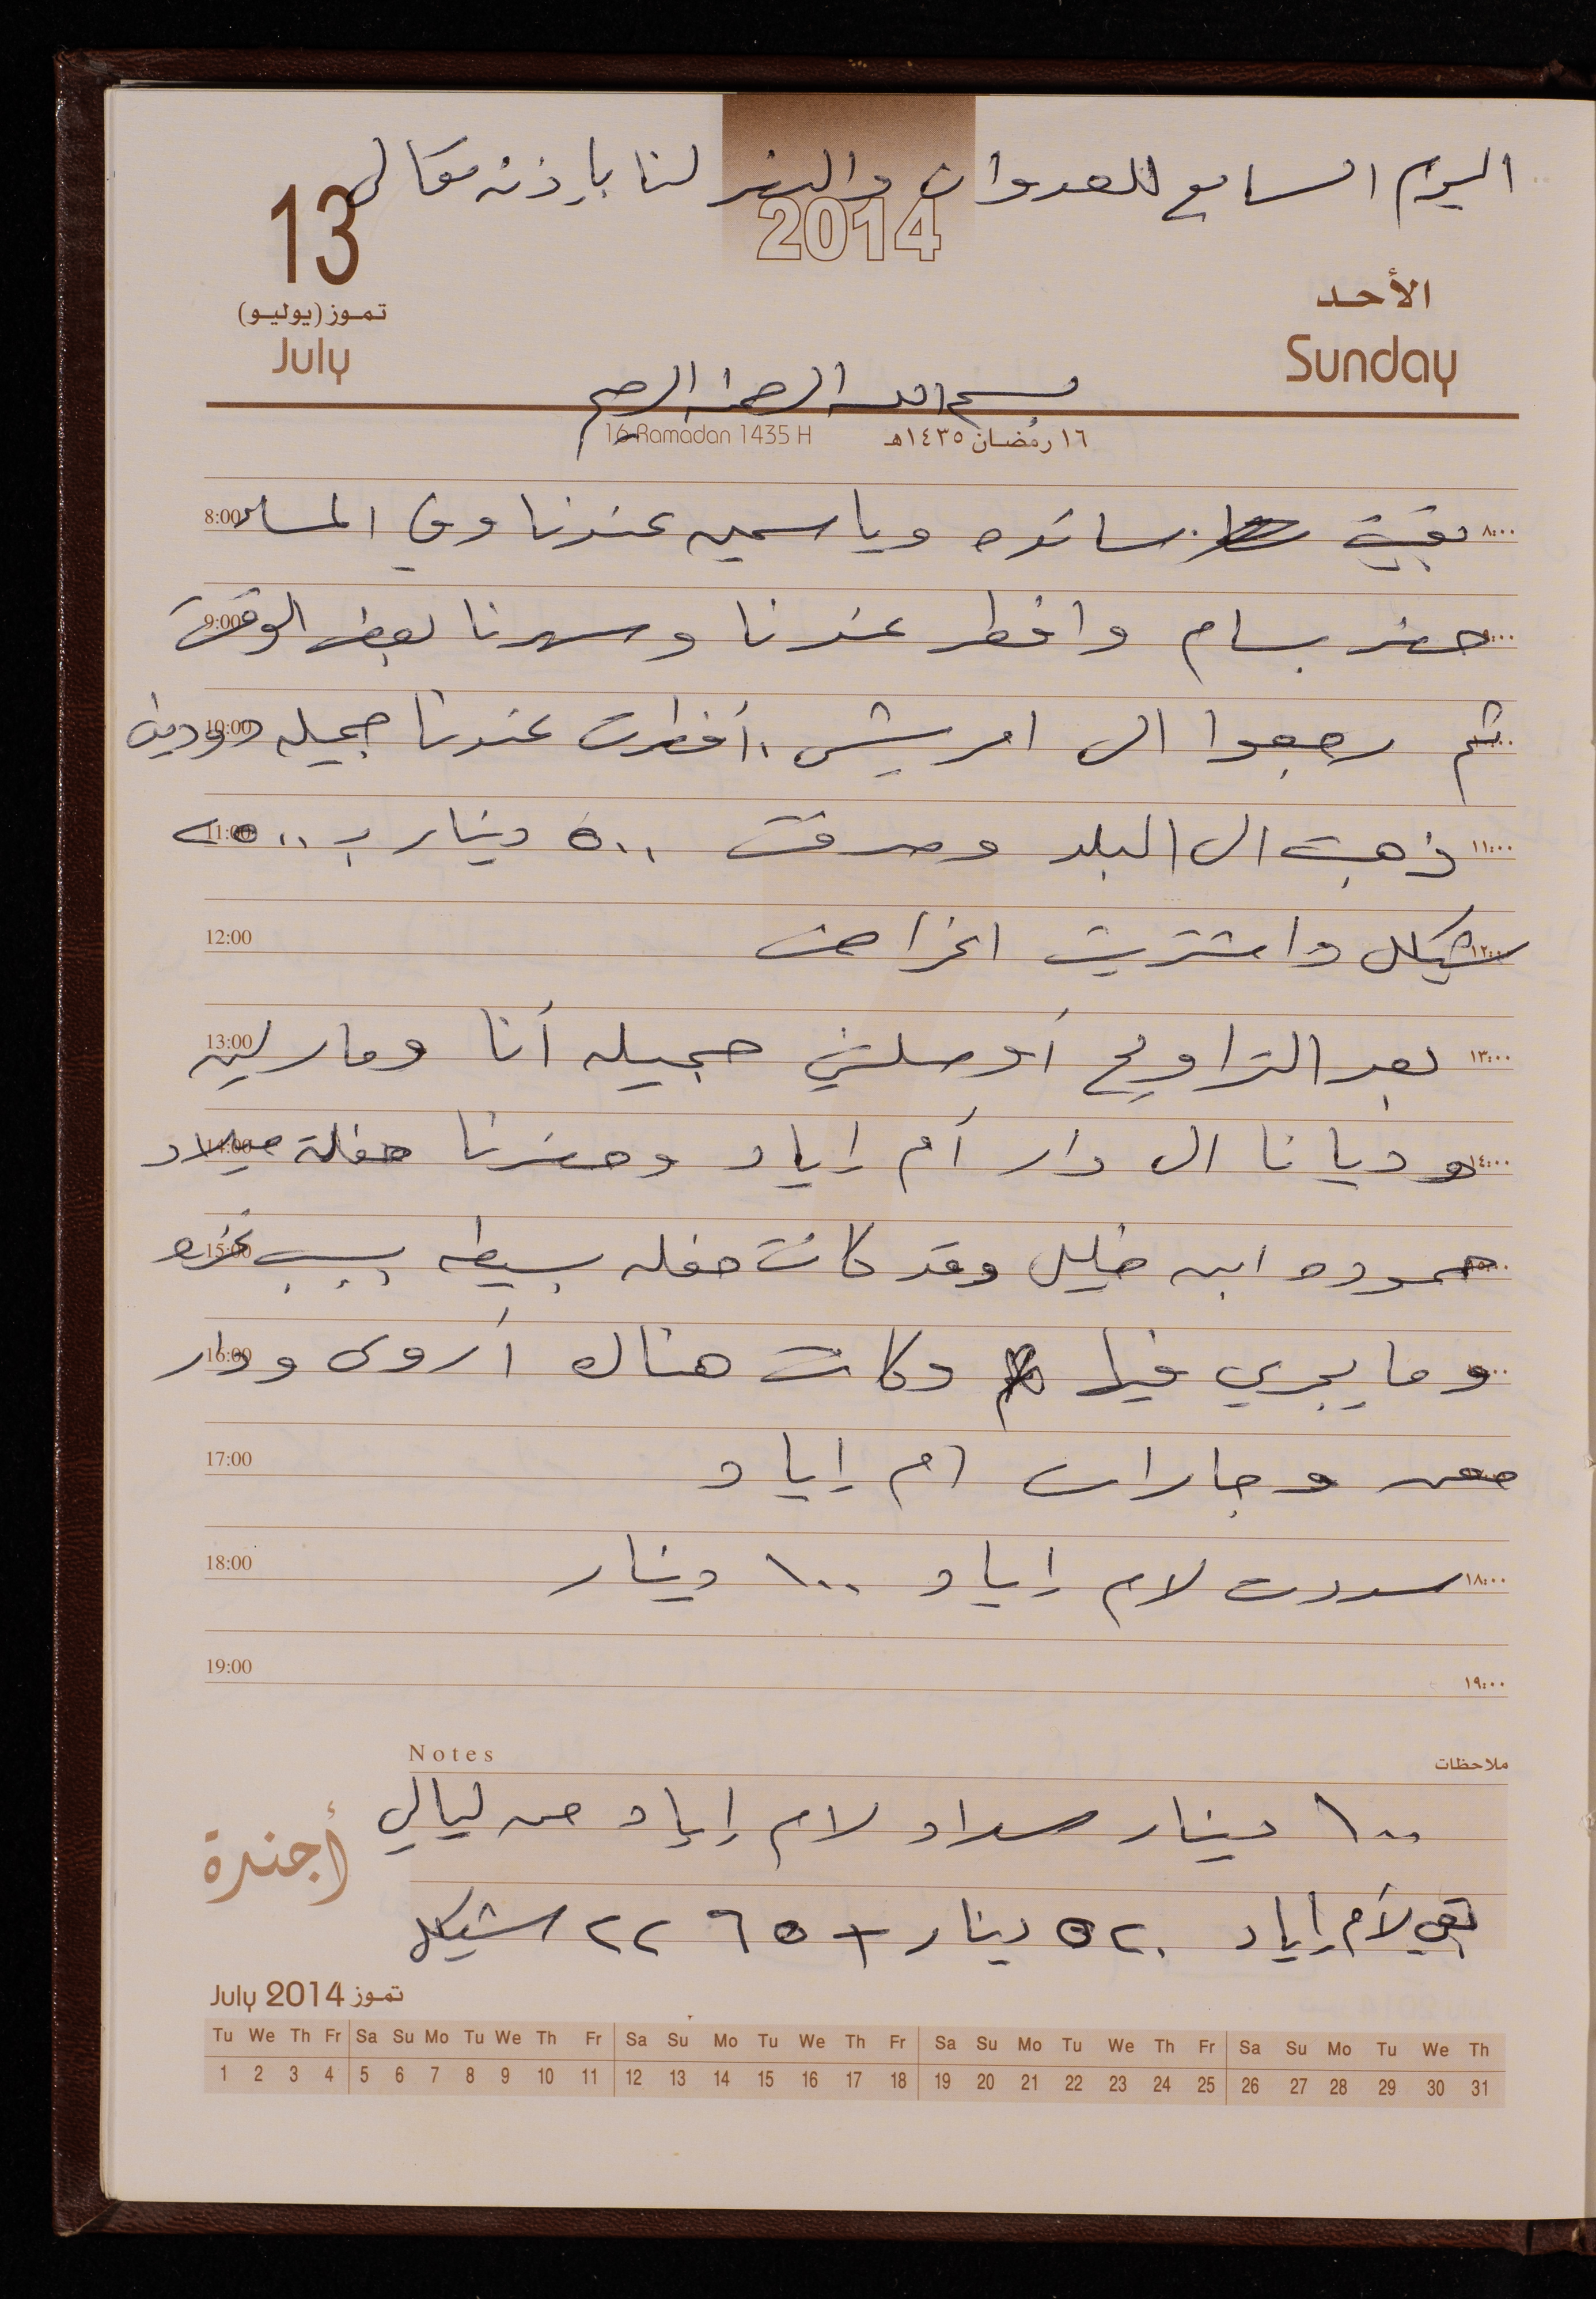 اليوم السابع للعدوان والنصر لنا بإذنه تعالى
2014
13
تموز (يوليو)
July
الأحد
Sunday
بسم الله الرحمن الرحيم
16 Ramadan 1435 H ١٦ رمضان ١٤٣٥هـ
8:00 بقيت سائده وياسمين عندنا وفي المساء ٨:٠٠
9:00 حضر بسام وافطر عندنا وسهرنا بعض الوقت
10:00 ثم رجعوا الى امريش. أفطرت عندنا جميله
11:00 ذهبت الى البلد وصرفت ٥٠٠ دينار ب ٢٥٠٠ ١١:٠٠
12:00 شيكل واشتريت اغراض ١٢:٠٠
13:00 بعد التراويح أوصلتني جميله أنا ومارلين ١٣:٠٠
14:00 وديانا الى دار أم إياد وحضرنا حفلة ميلاد ١٤:٠٠
15:00 حموده ابن خليل وقد كانت حفله بسيطه بسبب غزه
16:00 وما يجري فيها وكانت هناك أروى ودار
17:00 معن وجارات ام إياد
18:00 سددت لام إياد ١٠٠ دينار ١٨:٠٠
19:00 ١٩:٠٠
Notes ملاحظات
١٠٠ دينار سداد لام إياد من ليالي
بقي لأم إياد ٥٢٠ دينار + ٢٢٦٥ شيكل
أجندة
July 2014 تموز
Tu We Th Fr Sa Su Mo Tu We Th Fr Sa Su Mo Tu We Th Fr Sa Su Mo Tu We Th Fr Sa Su Mo Tu We Th
1 2 3 4 5 6 7 8 9 10 11 12 13 14 15 16 17 18 19 20 21 22 23 24 25 26 27 28 29 30 31